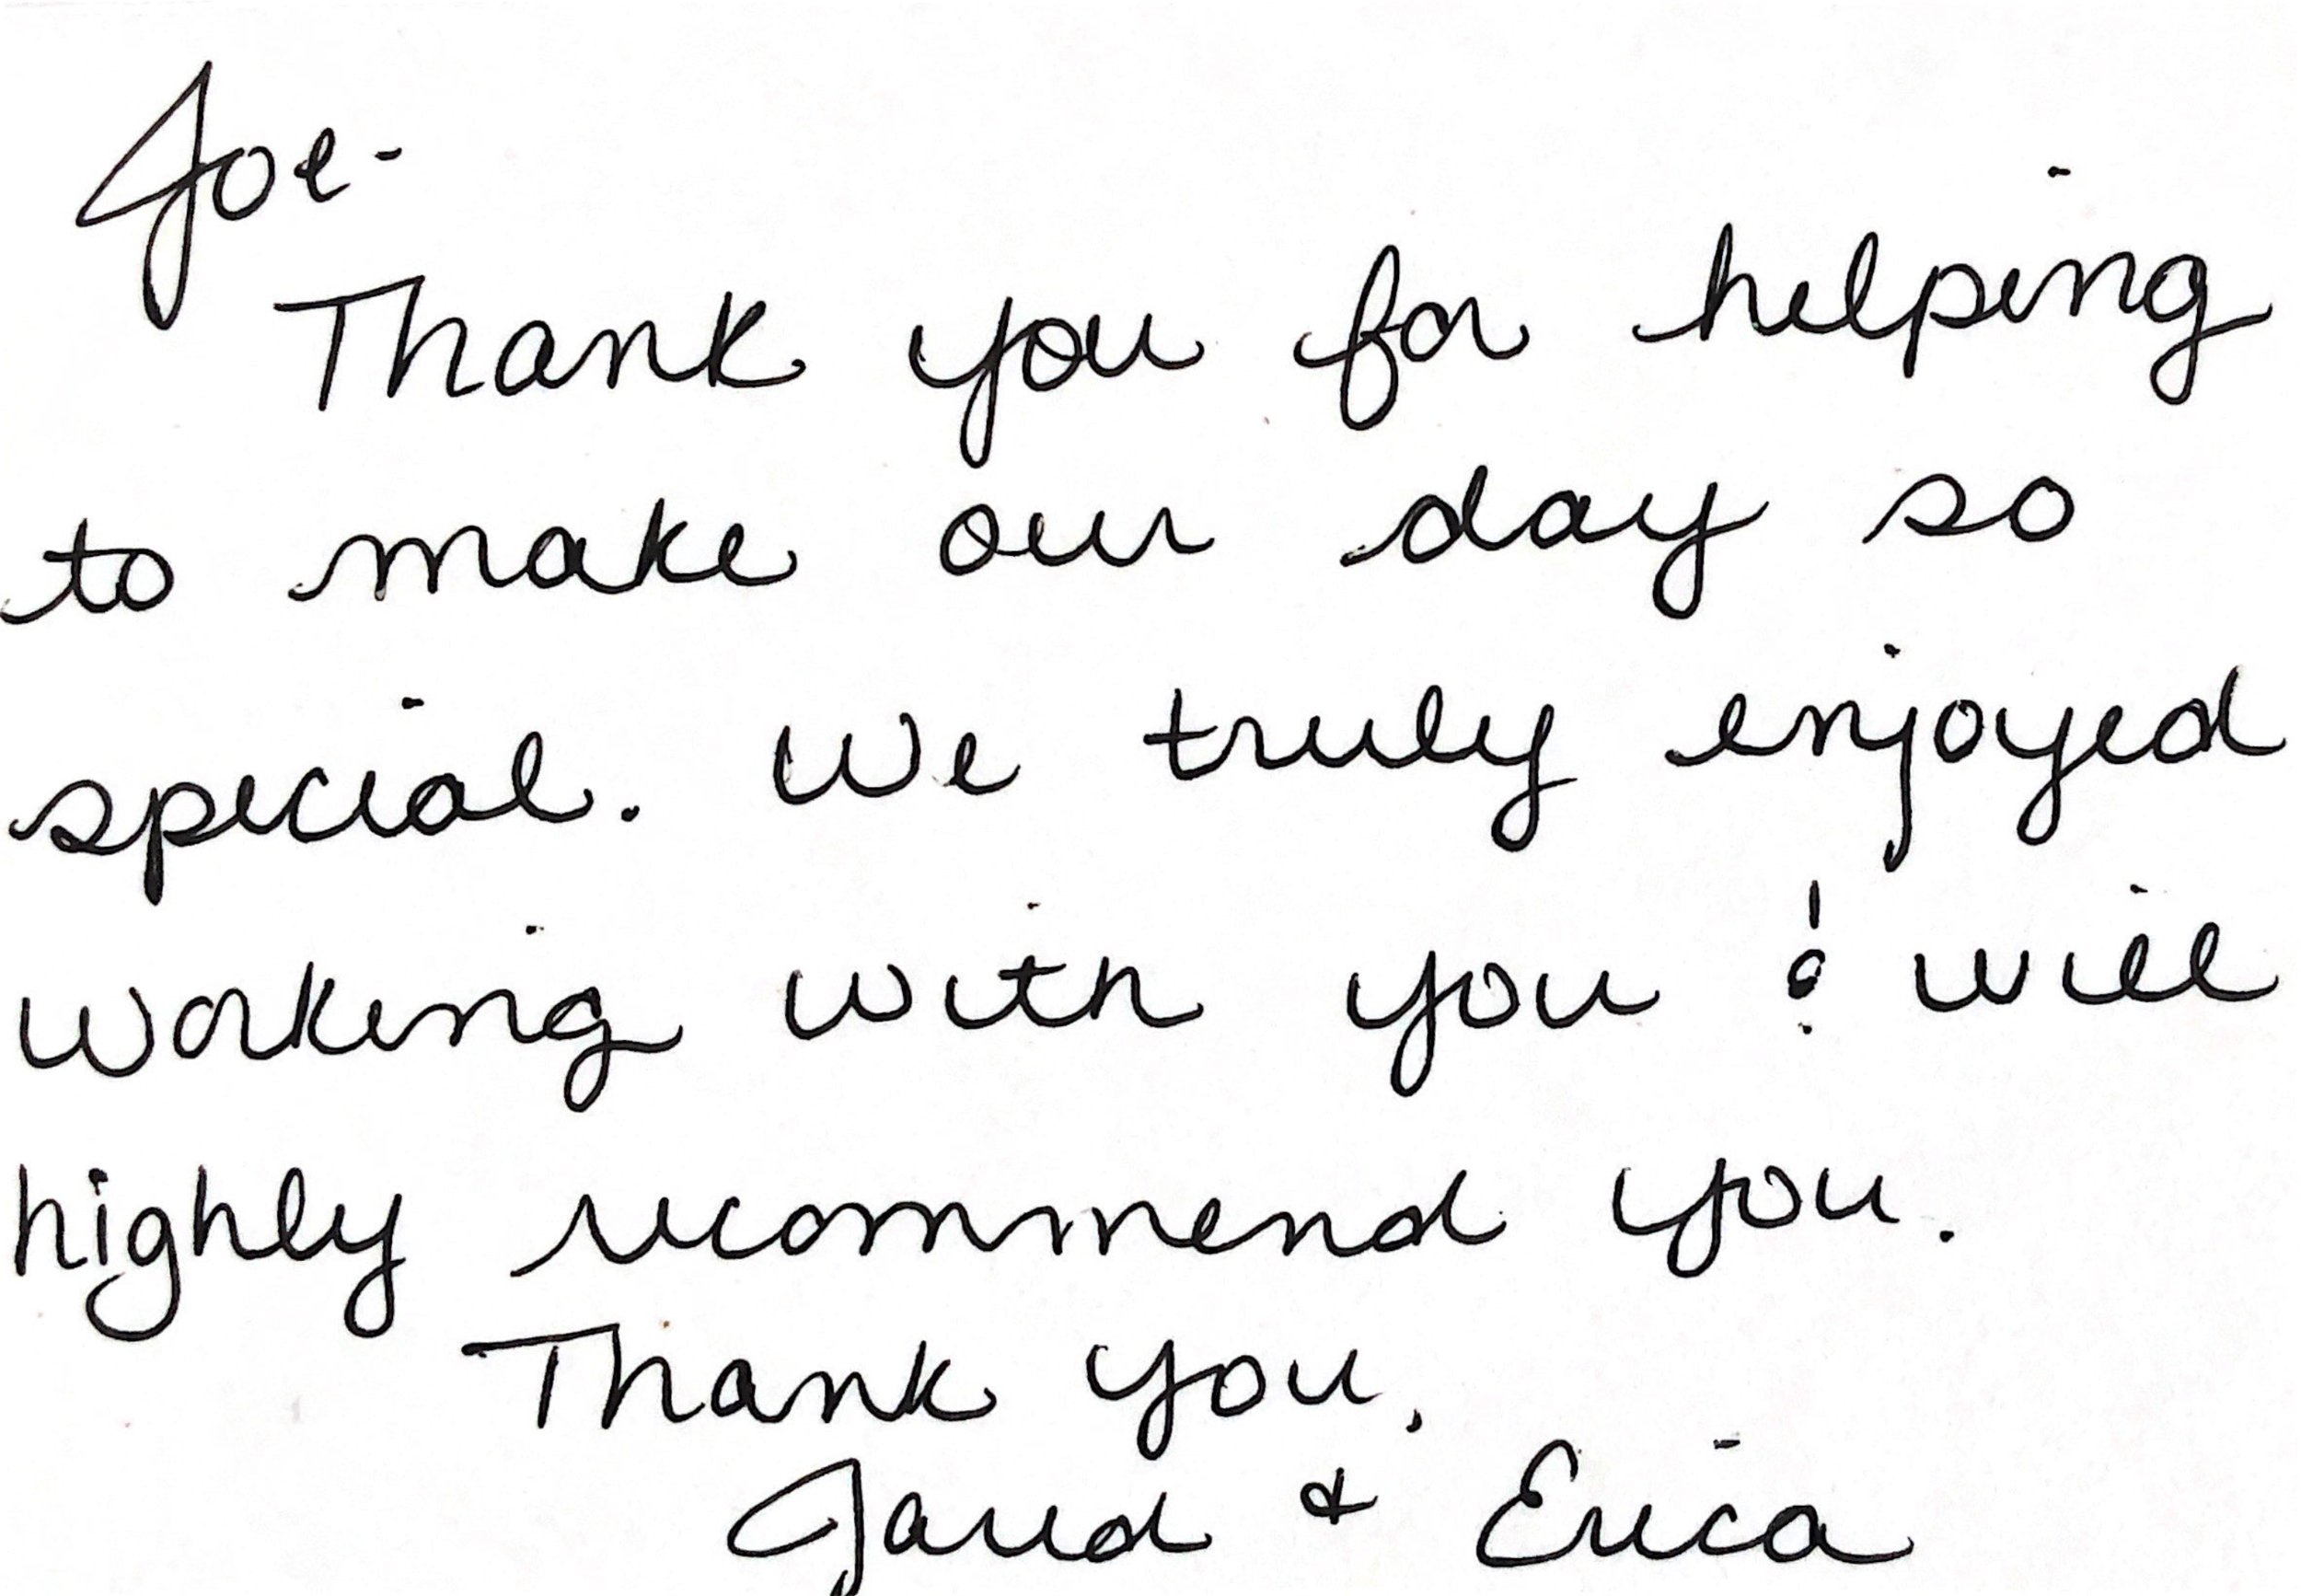 Joe-
Thank you for helping
to make our day so
special. We truly enjoyed
working with you & will
highly recommend you.
Thank you,
Jared & Erica